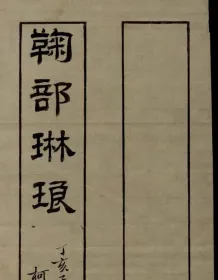 鞠部琳琅
丁亥
柯